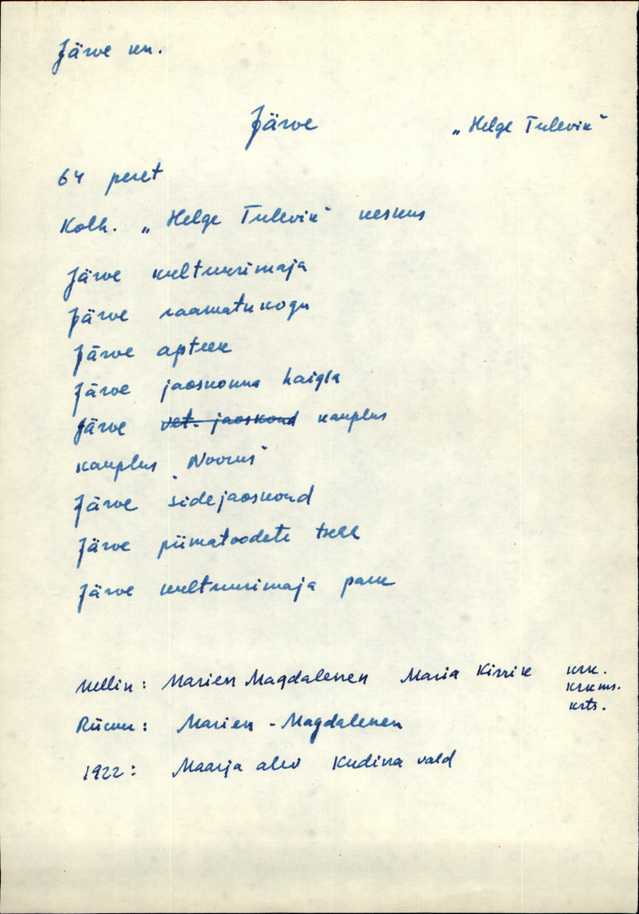 Järve kn.
Järve „Helge Tulevik"
64 peret
Kolh. „Helge Tulevik" keskus
Järve kultuurimaja
Järve raamatukogu
Järve apteek
Järve jaoskonna haigla
Järve vet. jaoskond kauplus
Kauplus "Noorus"
Järve sidejaoskond
Järve piimatoodete tsehh
Järve kultuurimaja park
Mellin: Marien Magdalenen Maria Kirrik krk.
krkms.
krts.
Rücker: Marien-Magdalenen
1922: Maarja alev Kudina vald